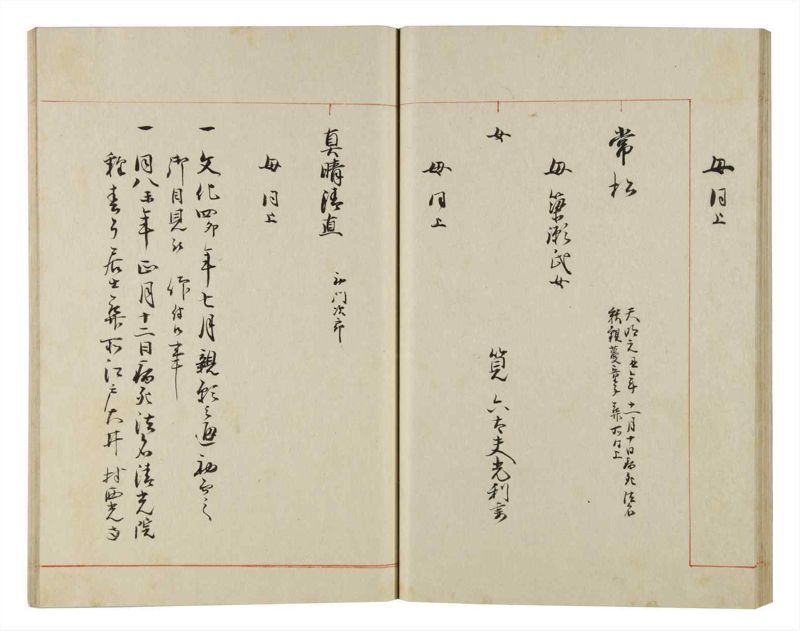 母同上
常松
天明元丑年十二月十日病死法名
秋観夢童子葬所同上
母簗瀬氏女
女
筧六太夫光利妻
母同上
真晴清直
門次郎
母同上
一文化四卯年七月親願之通初而之
御目見被仰付候事
一同八未年正月十二日病死法名清光院
居士葬所江戸大井村西光寺